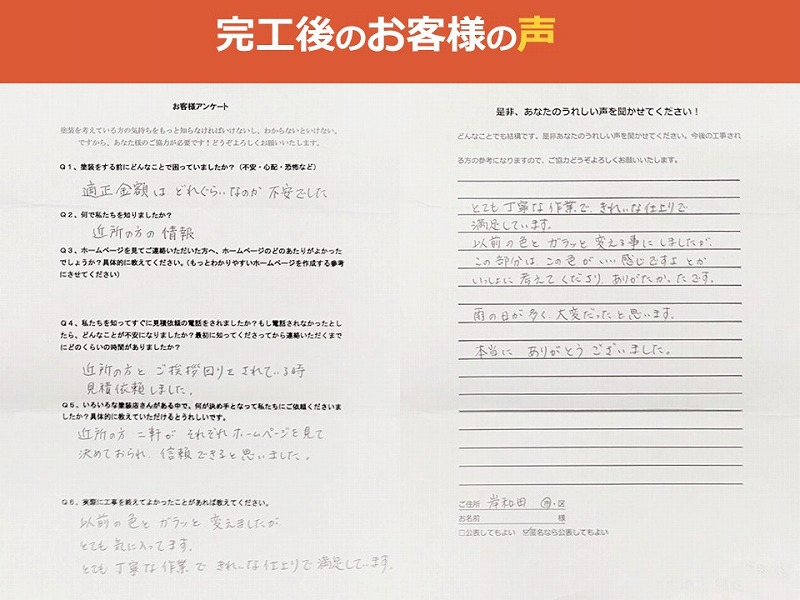 完工後のお客様の声
お客様アンケート
塗装を考えている方の気持ちをもっと知らなければいけないし、わからないといけない。
ですから、あなた様のご協力が必要です！どうぞよろしくお願いいたします。
Q1、塗装をする前にどんなことで困っていましたか？（不安・心配・恐怖など）
適正金額は どれぐらいなのか 不安でした
Q2、何で私たちを知りましたか？
近所の方の情報
Q3、ホームページを見てご連絡いただいた方へ、ホームページのどのあたりがよかった
でしょうか？具体的に教えてください。（もっとわかりやすいホームページを作成する参考
にさせてください）
Q4、私たちを知ってすぐに見積依頼の電話をされましたか？もし電話されなかったとし
たら、どんなことが不安になりましたか？最初に知ってくださってから連絡いただくまで
にどのくらいの時間がありましたか？
近所の方と ご挨拶回りをされている時
見積依頼しました。
Q5、いろいろな塗装店さんがある中で、何が決め手となって私たちにご依頼くださいま
したか？具体的に教えていただけるとうれしいです。
近所の方 二軒が それぞれホームページを見て
決めておられ 信頼できると思いました。
Q6、実際に工事を終えてよかったことがあれば教えてください。
以前の色と ガラッと 変えましたが
とても 気に入ってます。
とても 丁寧な作業で きれいな仕上りで満足しています。
是非、あなたのうれしい声を聞かせてください！
どんなことでも結構です。是非あなたのうれしい声を聞かせてください。今後の工事され
る方の参考になりますので、ご協力どうぞよろしくお願いいたします。
とても 丁寧な作業で、きれいな仕上りで
満足しています。
以前の色と ガラッと 変える事にしましたが、
この部分は この色が いい 感じですよ とか
いっしょに 考えてくださり、ありがたかったです。
雨の日が多く、大変だったと思います。
本当に ありがとう ございました。
ご住所 岸和田 市・区
お名前 様
□公表してもよい ☑匿名なら公表してもよい